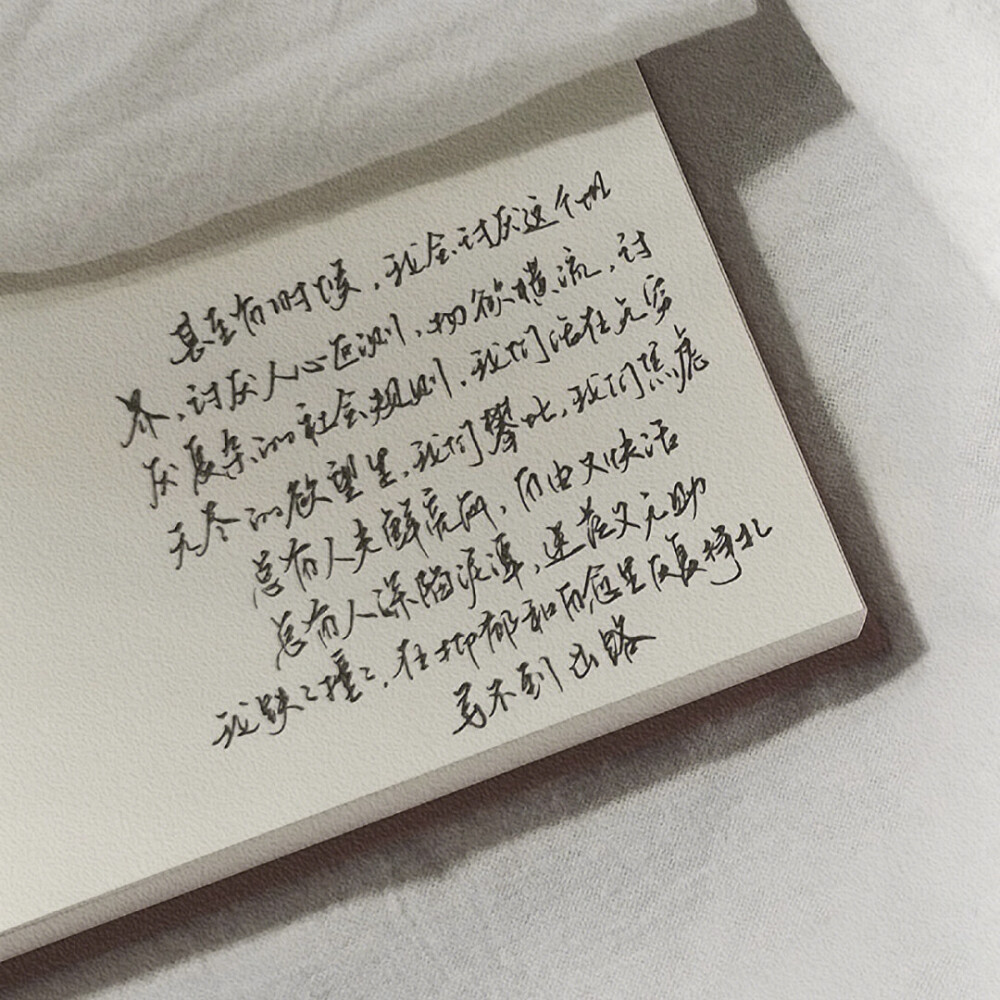 甚至有时候，我会讨厌这个世
界，讨厌人心叵测，物欲横流，讨
厌复杂的社会规则，我们活在无穷
无尽的欲望里，我们攀比，我们焦虑
总有人夫鲜衣怒马，自由又快活
总有人深陷泥潭，迷茫又无助
我跌跌撞撞，在抑郁和自愈里反复挣扎
寻不到出路